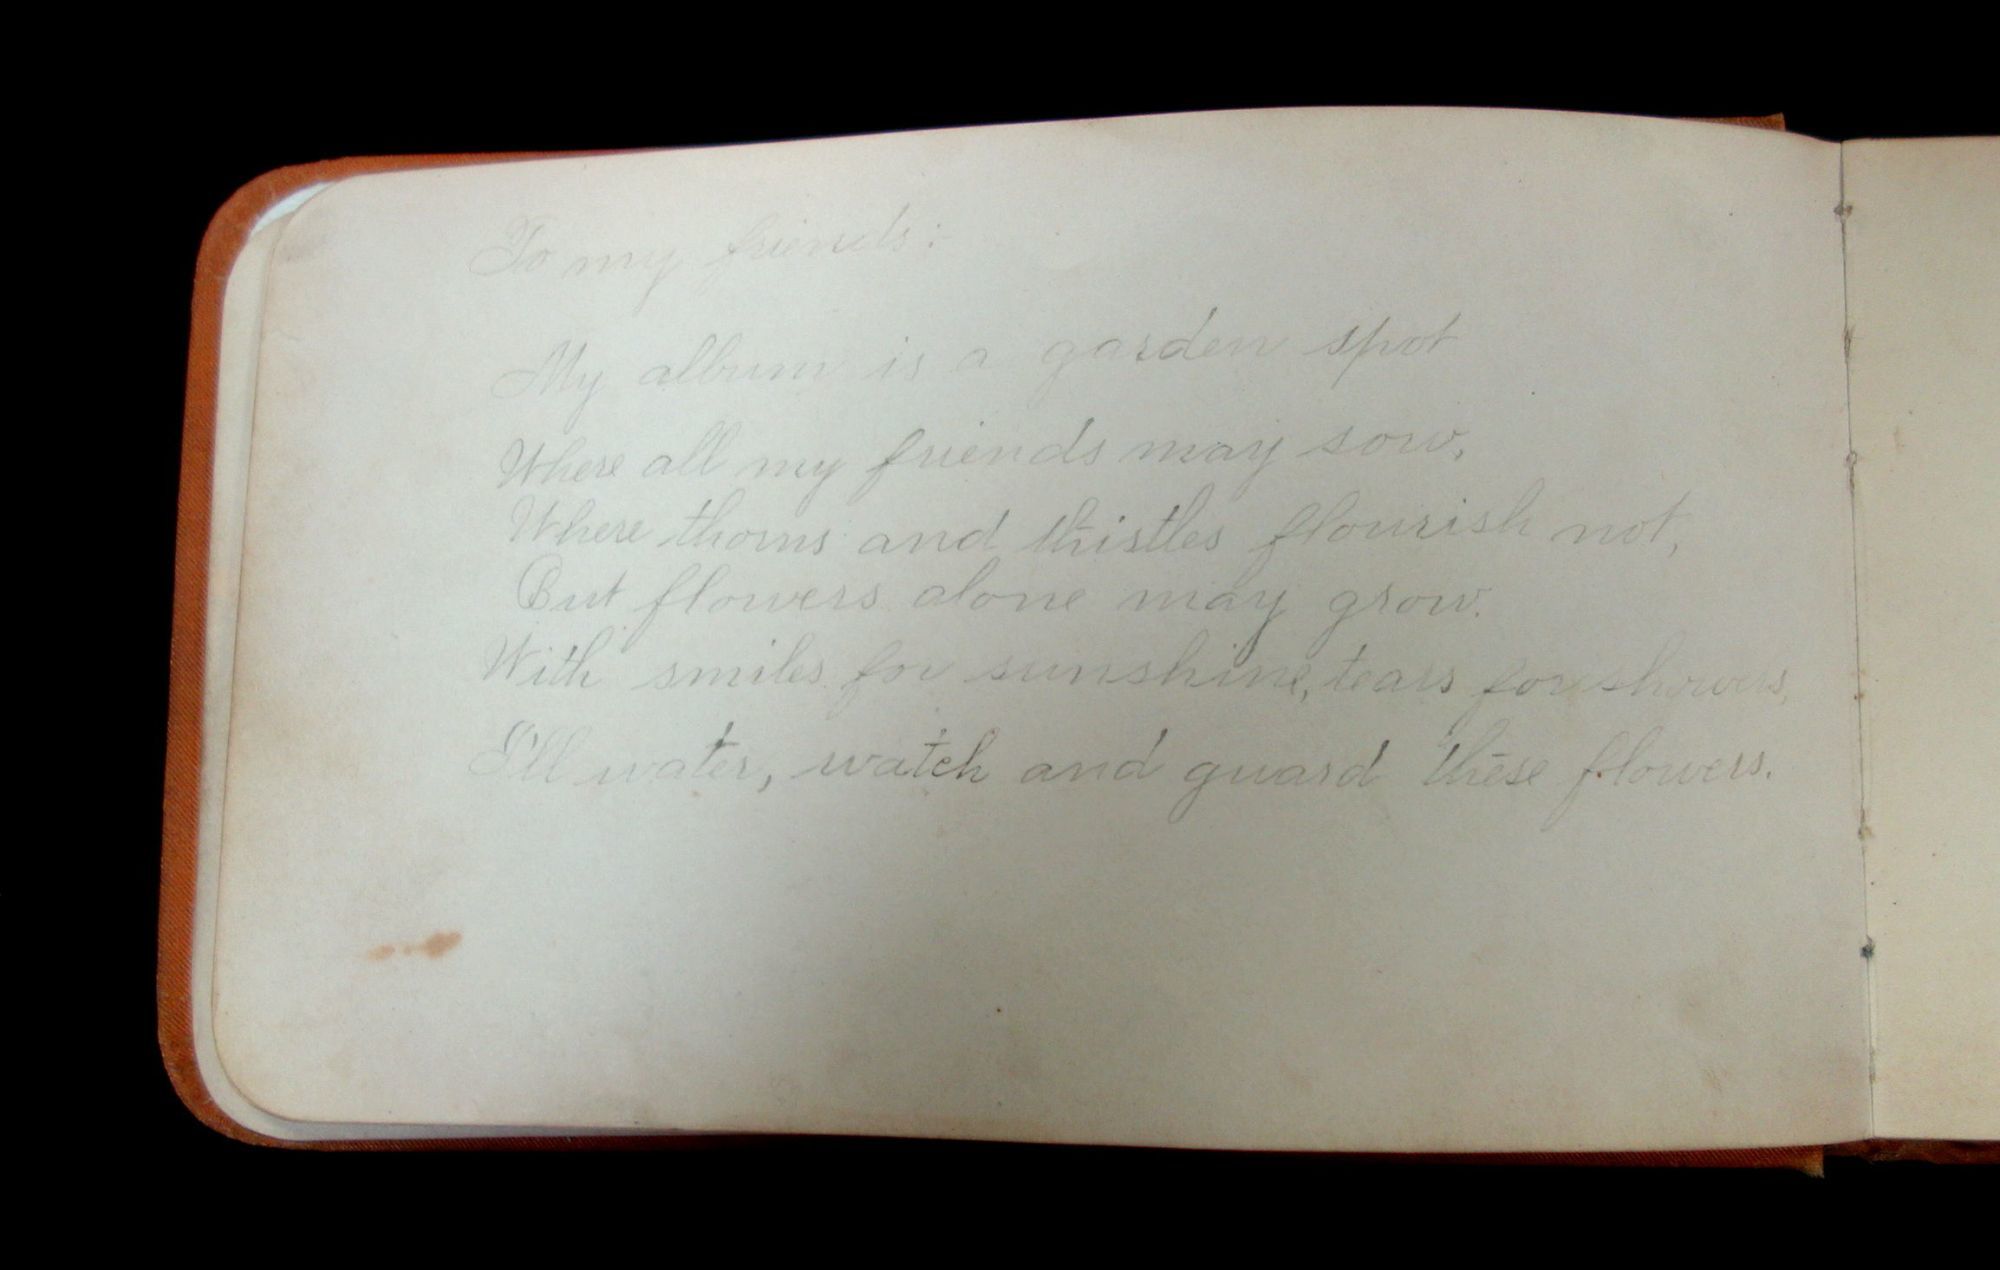 To my friends:
My album is a garden spot
Where all my friends may sow,
Where thorns and thistles flourish not,
But flowers alone may grow.
With smiles for sunshine, tears for showers,
I'll water, watch and guard these flowers.